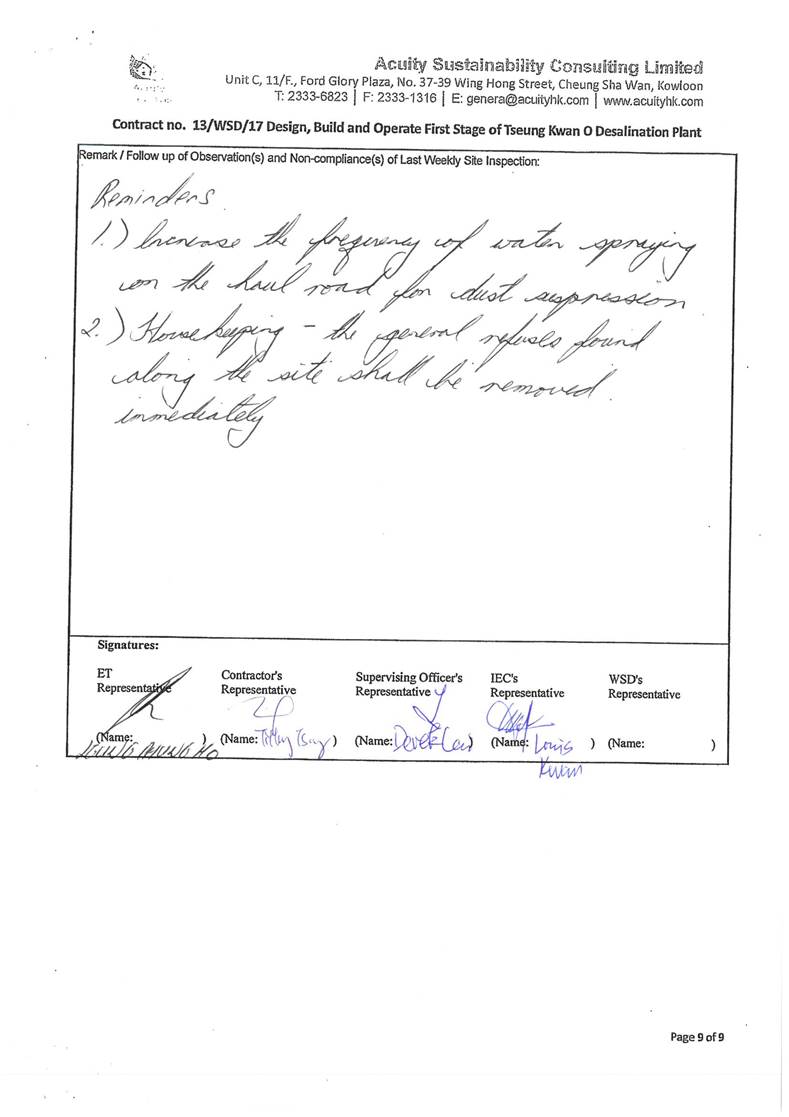 Acuity Sustainability Consulting Limited
Unit C, 11/F., Ford Glory Plaza, No. 37-39 Wing Hong Street, Cheung Sha Wan, Kowloon
T: 2333-6823 | F: 2333-1316 | E: genera@acuityhk.com | www.acuityhk.com
Contract no. 13/WSD/17 Design, Build and Operate First Stage of Tseung Kwan O Desalination Plant
Remark / Follow up of Observation(s) and Non-compliance(s) of Last Weekly Site Inspection:
Reminders
1.) Increase the frequency of water spraying
on the haul road for dust suppression
2.) Housekeeping - the general refuses found
along the site shall be removed
immediately
Signatures:
ET Representative
Contractor's Representative
Supervising Officer's Representative
IEC's Representative
WSD's Representative
(Name: )
(Name: )
(Name: Derek )
(Name: Louis )
(Name: )
Page 9 of 9